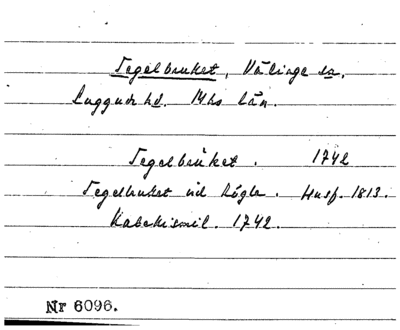 Tegelbruket, Välinge sn.
Luggude hd. Mhs län.
Tegelbruket. 1742
Tegelbruket vid Rögla. Husf. 1813.
1742.
Nr 6096.